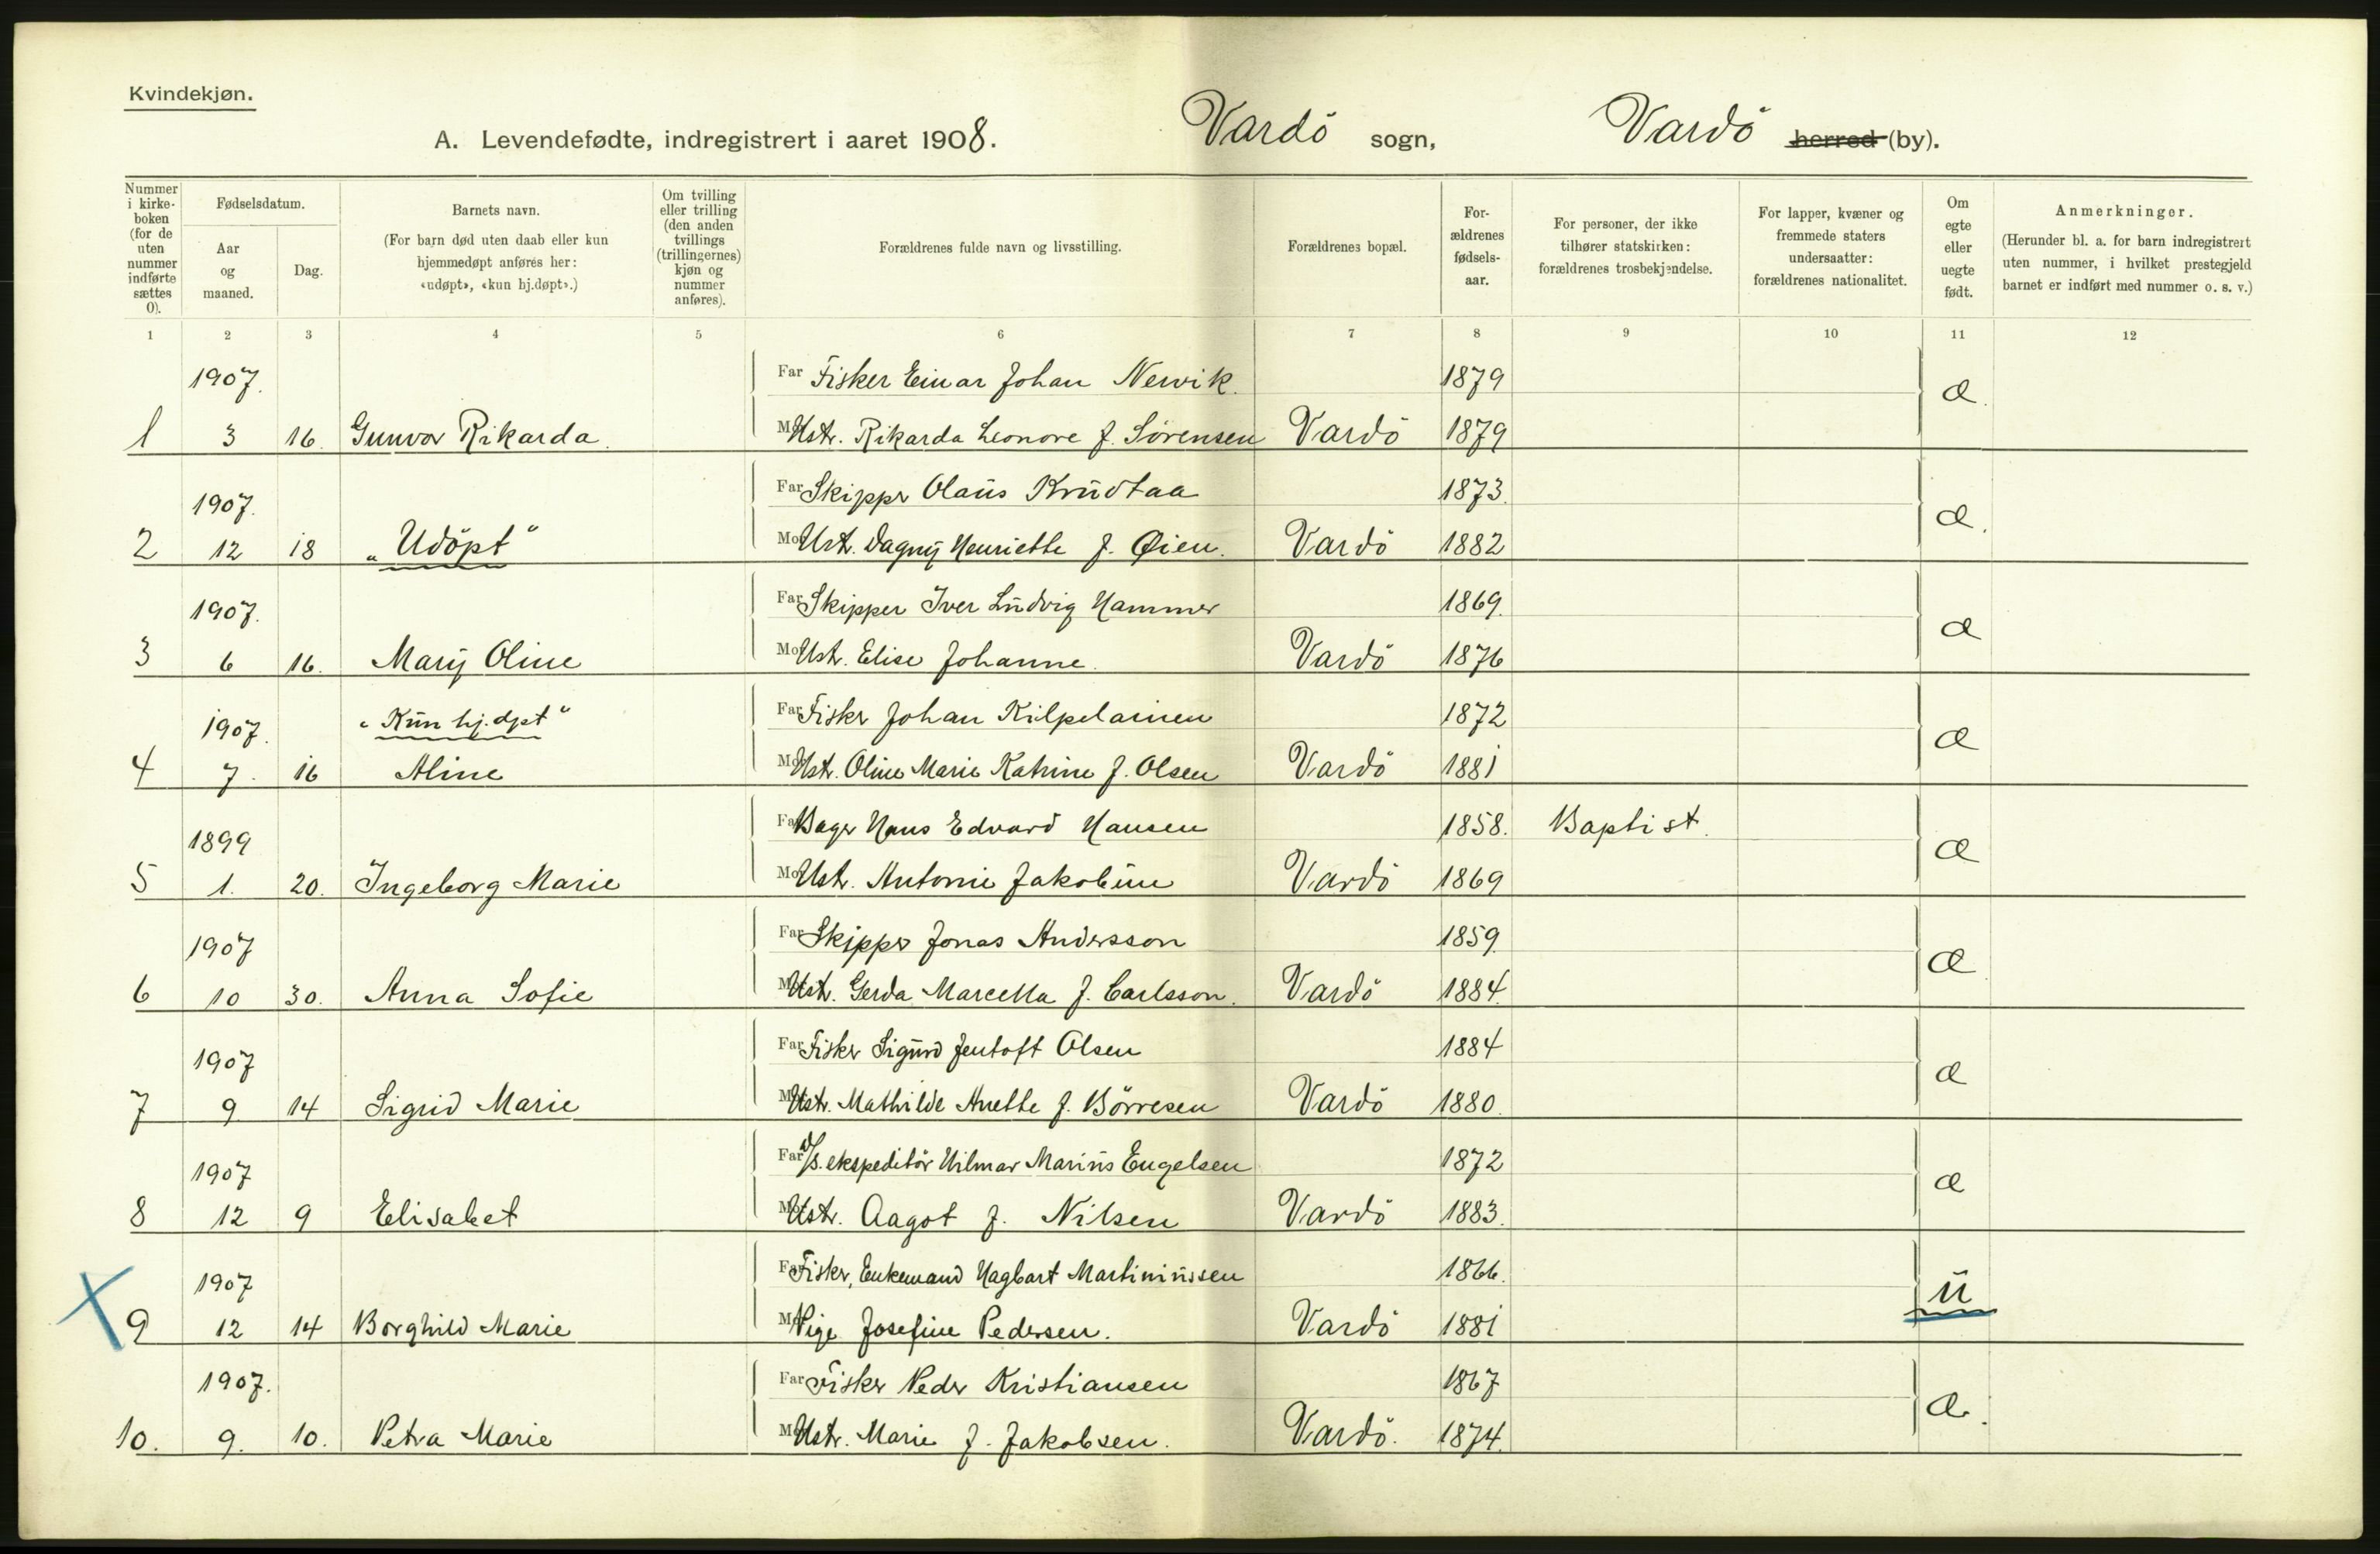 Kvindekjøn.
A. Levendefødte, indregistrert i aaret 1908. Vardö sogn, Vardö herred (by).
Nummer i kirke-boken (for de uten nummer indførte sættes 0).
Fødselsdatum.
Aar og maaned.
Dag.
Barnets navn.
(For barn død uten daab eller kun hjemmedøpt anføres her: «udøpt», «kun hj.døpt».)
Om tvilling eller trilling (den anden tvillings (trillingernes) kjøn og nummer anføres).
Forældrenes fulde navn og livsstilling.
Forældrenes bopæl.
For-ældrenes fødsels-aar.
For personer, der ikke tilhører statskirken: forældrenes trosbekjendelse.
For lapper, kvæner og fremmede staters undersaatter: forældrenes nationalitet.
Om egte eller uegte født.
Anmerkninger.
(Herunder bl. a. for barn indregistrert uten nummer, i hvilket prestegjeld barnet er indført med nummer o. s. v.)
1 2 3 4 5 6 7 8 9 10 11 12
1907. Far Fisker Einar Johan Nervik. 1879 æ.
1 3 16. Gunvor Rikarda. Hstr. Rikarda Leonore f. Sörensen Vardö 1879
1907. Far Skipper Olaus Krudtaa 1873. æ.
2 12 18 „Udöpt" Hst. Dagny Henriette f. Øien. Vardö 1882
1907. Far Skipper Iver Ludvig Hammer 1869. æ
3 6 16. Mary Oline Hstr. Elise Johanne. Vardö 1876
1907. „Kun hj.dpt" Far Fisker Johan Kilpelainen 1872 æ
4 7. 16 Aline Hstr. Oline Marie Katrine f. Olsen Vardö 1881
1899 Far Bager Hans Edvard Hansen 1858. Baptist. æ
5 1. 20. Ingeborg Marie Hstr. Antonie Jakobine Vardö 1869
1907 Far Skipper Jonas Andersson 1859. æ
6 10 30. Anna Sofie Hstr. Gerda Marcella f. Carlsson. Vardö 1884.
1907 Far Fisker Sigurd Jentoft Olsen 1884 æ
7 9 14 Sigrid Marie Hstr. Mathilde Anette f. Börresen Vardö 1880.
1907 Far D/s. ekspeditör Hilmar Marius Engelsen 1872 æ
8 12 9 Elisabet Hstr. Aagot f. Nilsen Vardö 1883.
1907 Far Fisker, Enkemand Hagbart Martiniussen 1866. u
X 9 12 14 Borghild Marie Pige Josefine Pedersen. Vardö 1881
1907. Far Fisker Peder Kristiansen 1867 æ.
10. 9. 10. Petra Marie Hstr. Marie f. Jakobsen. Vardö. 1874.